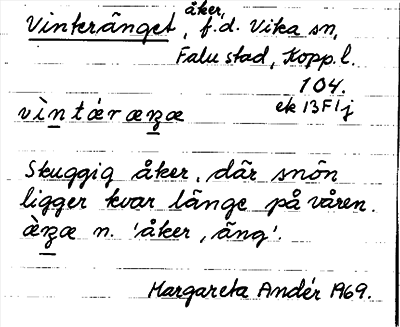 Vinteränget, åker, f.d. Vika sn,
Falu stad, Kopp.l.
104.
ek 13F1j
vìntæræʒæ
Skuggig åker, där snön
ligger kvar länge på våren.
æ̀ʒæ n. 'åker, äng'.
Margareta Andér 1969.